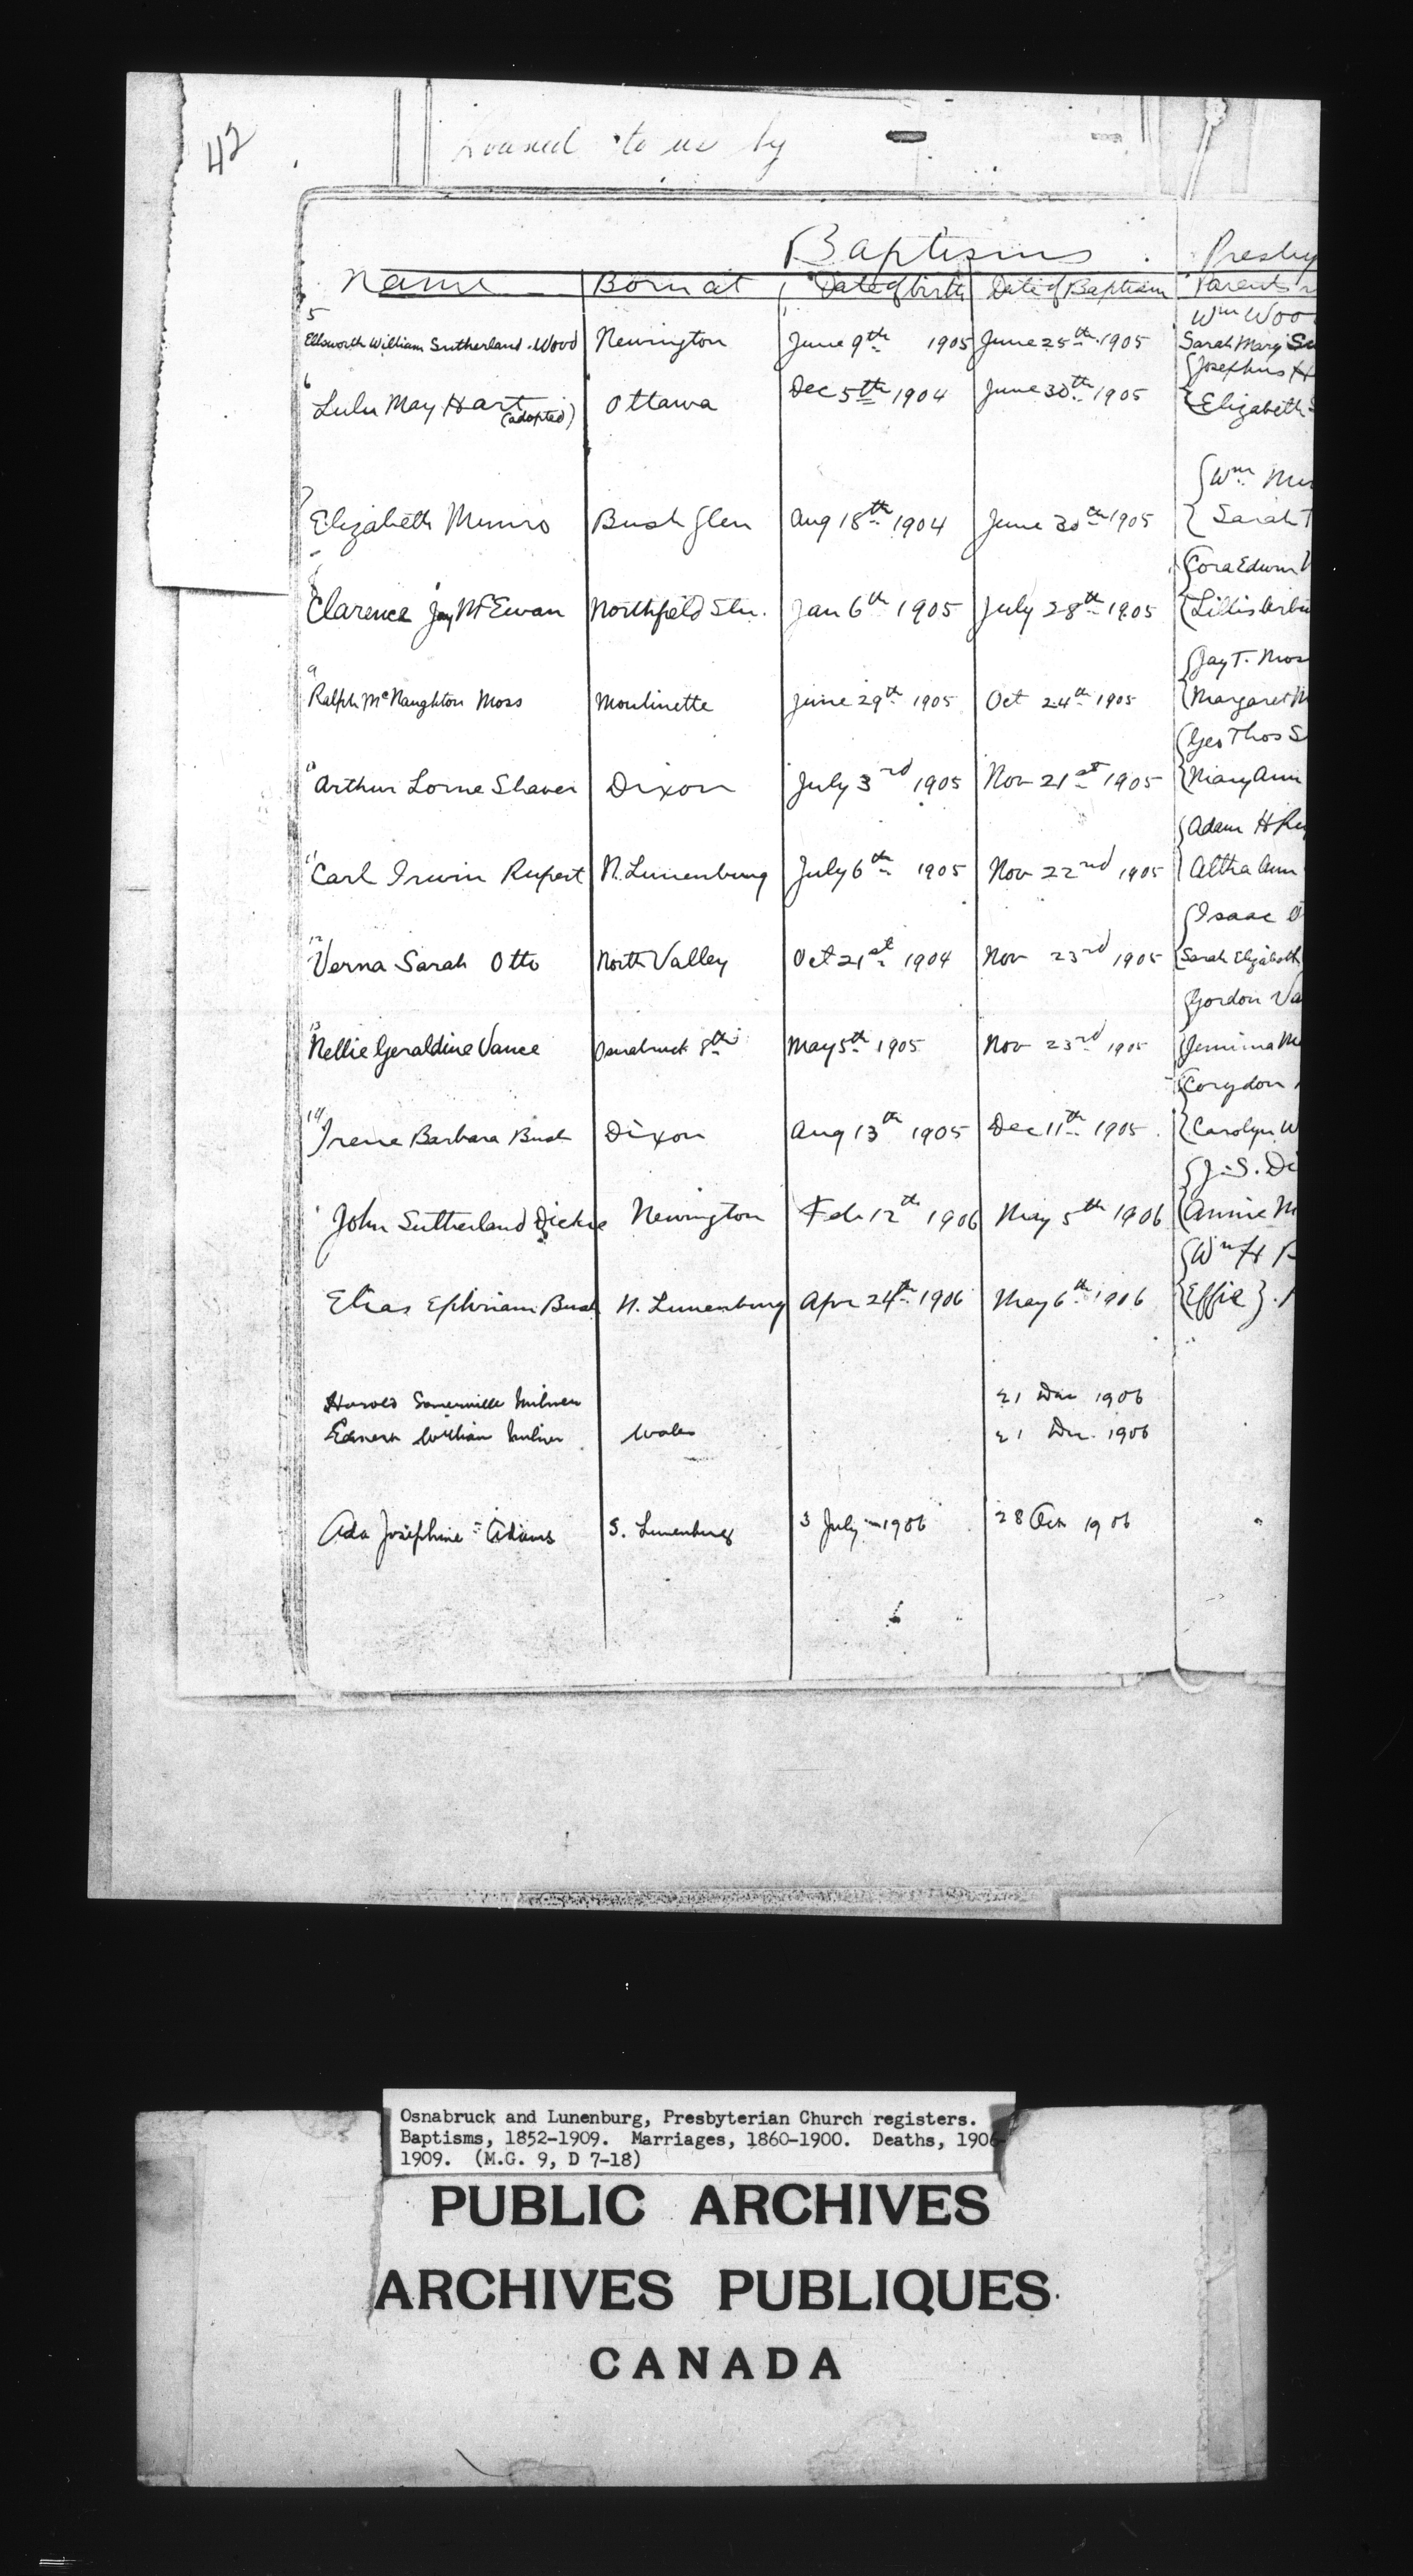 42
Loaned to us by
Baptisms . Presby
Name Born at Date of birth Date of Baptism Parents
5 Wm Woo
Ellsworth William Sutherland Wood Newington June 9th 1905 June 25th 1905 Sarah Mary Su
6 Josephus H
Lulu May Hart (adopted) Ottawa Dec 5th 1904 June 30th 1905 Elizabeth
7 Wm Mu
Elizabeth Munro Bush Glen Aug 18th 1904 June 30th 1905 Sarah
Cora Edwin
Clarence Jay McEwan Northfield Stn. Jan 6th 1905 July 28th 1905
9 Jay T. Moss
Ralph McNaughton Moss Moulinette June 29th 1905 Oct 24th 1905 Margaret M
Geo Thos S
Arthur Lorne Shaver Dixon July 3rd 1905 Nov 21st 1905 Mary Ann
11 Adam H Ru
Carl Irwin Rupert N. Lunenburg July 6th 1905 Nov 22nd 1905 Altha Ann
12 Isaac O
Verna Sarah Otto North Valley Oct 21st 1904 Nov 23rd 1905 Sarah Elizabeth
13 Gordon Va
Nellie Geraldine Vance Osnabruck 8th May 5th 1905 Nov 23rd 1905 Jemima M
Corydon
14 Irene Barbara Bush Dixon Aug 13th 1905 Dec 11th 1905 Carolyn W
J. S. Di
John Sutherland Dickie Newington Feb 12th 1906 May 5th 1906 Annie M
Wm H B
Elias Ephriam Bush N. Lunenburg Apr 24th 1906 May 6th 1906 Effie
Harold Somerville Milner 21 1906
William Milner Wales 21 1906
Ada Josephine Adams S. Lunenburg 3 July 1906 28 Oct 1906
Osnabruck and Lunenburg, Presbyterian Church registers.
Baptisms, 1852-1909. Marriages, 1860-1900. Deaths, 1906-
1909. (M.G. 9, D 7-18)
PUBLIC ARCHIVES
ARCHIVES PUBLIQUES
CANADA